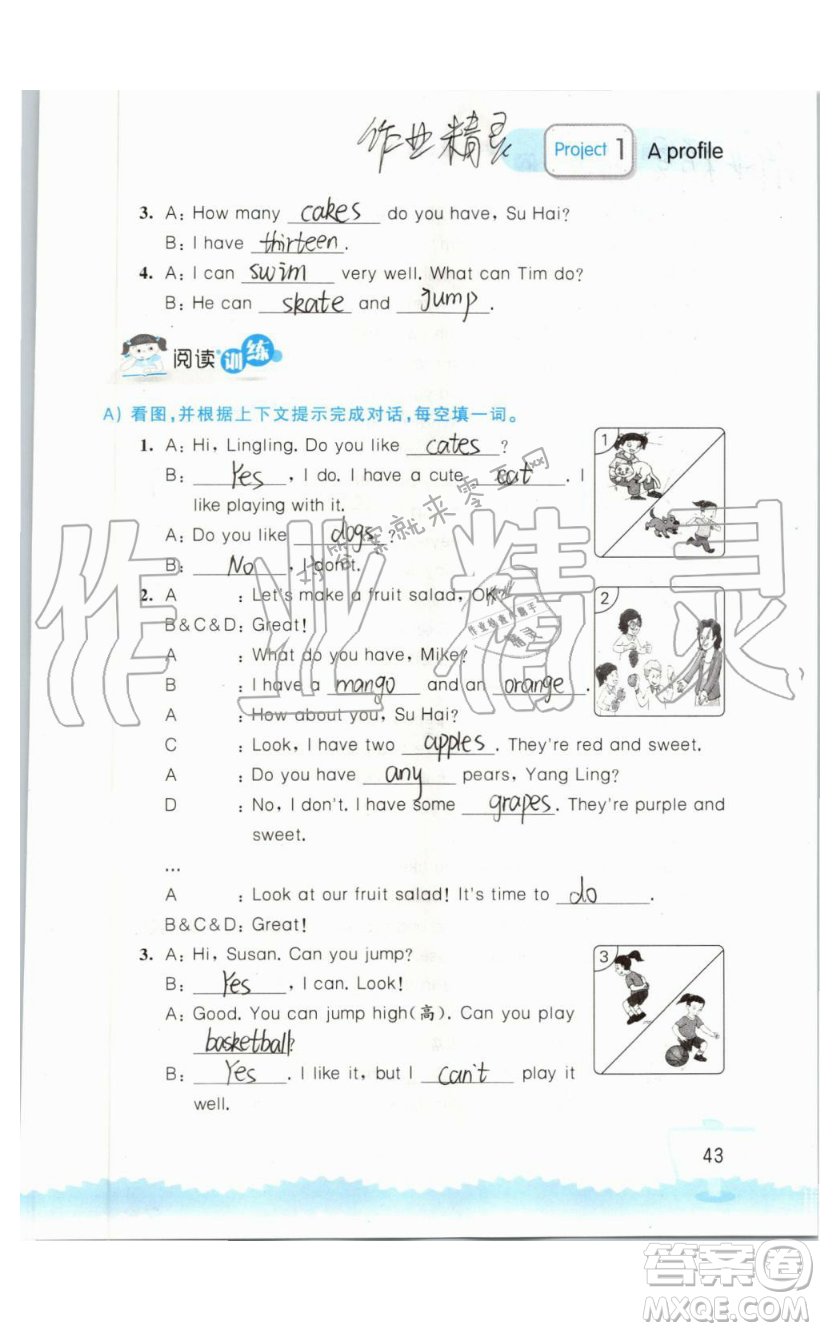 作业精灵 Project 1 A profile
3. A: How many cakes do you have, Su Hai?
B: I have thirteen.
4. A: I can swim very well. What can Tim do?
B: He can skate and jump.
阅读训练
A) 看图,并根据上下文提示完成对话,每空填一词。
1. A: Hi, Lingling. Do you like cates?
B: Yes, I do. I have a cute cat. I
like playing with it.
A: Do you like dogs?
B: No, I don't.
2. A : Let's make a fruit salad, OK?
B&C&D: Great!
A : What do you have, Mike?
B : I have a mango and an orange.
A : How about you, Su Hai?
C : Look, I have two apples. They're red and sweet.
A : Do you have any pears, Yang Ling?
D : No, I don't. I have some grapes. They're purple and
sweet.
...
A : Look at our fruit salad! It's time to do.
B&C&D: Great!
3. A: Hi, Susan. Can you jump?
B: Yes, I can. Look!
A: Good. You can jump high(高). Can you play
basketball?
B: Yes. I like it, but I can't play it
well.
1
2
3
43
作业精灵
找答案就来零五网
答案圈
MXQE.COM